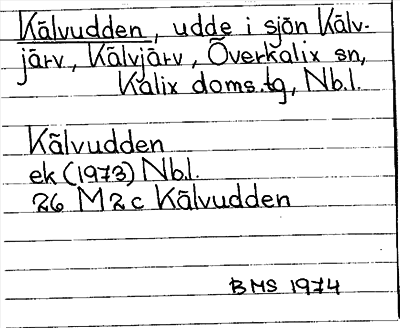 Kälvudden, udde i sjön Kälv-
järv, Kälvjärv, Överkalix sn,
Kalix doms.tg, Nb.l.
Kälvudden
ek (1973) Nb.l.
26 M 2 c Kälvudden
BMS 1974